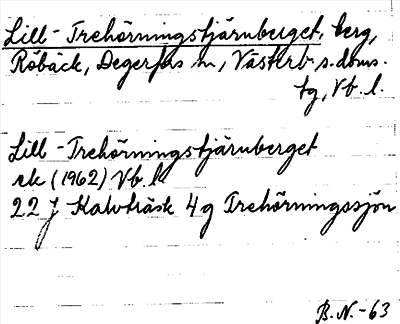 Lill-Trehörningstjärnberget, berg,
Röbäck, Degerfors sn, Västerb. s. doms.
tg, Vb. l.
Lill-Trehörningstjärnberget
rek (1962) Vb. l.
22 J Kalvträsk 4g Trehörningssjön
B. N. -63